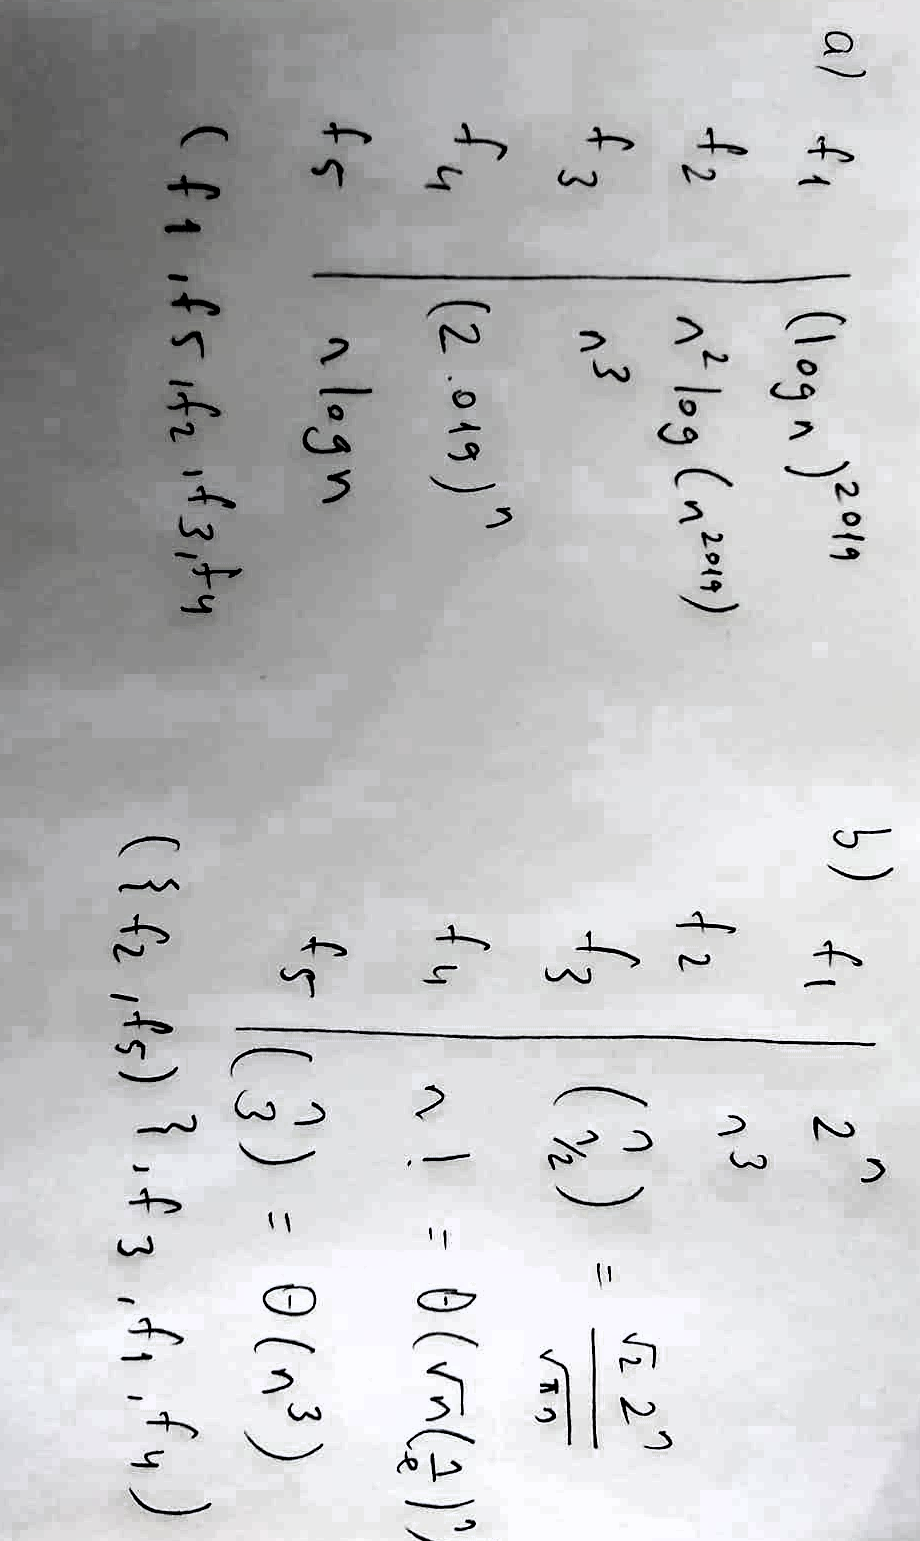 a) f1 | (log n)^2019
f2 | n^2 log (n^2019)
f3 | n^3
f4 | (2.019)^n
f5 | n log n
(f1, f5, f2, f3, f4
b) f1 | 2^n
f2 | n^3
f3 | (n n/2) = √2 2^n / √πn
f4 | n! = θ(√n(n/e)^n)
f5 | (n 3) = θ(n^3)
({f2, f5)}, f3, f1, f4)